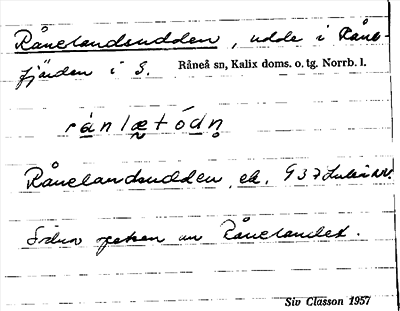 Rånelandsudden, udde i Råne-
fjärden i S. Råneå sn, Kalix doms. o. tg. Norrb. l.
rånlætódn
Rånelandsudden, ek. 937 Luleå NV
Södra spetsen av Rånelandet.
Siv Classon 1957